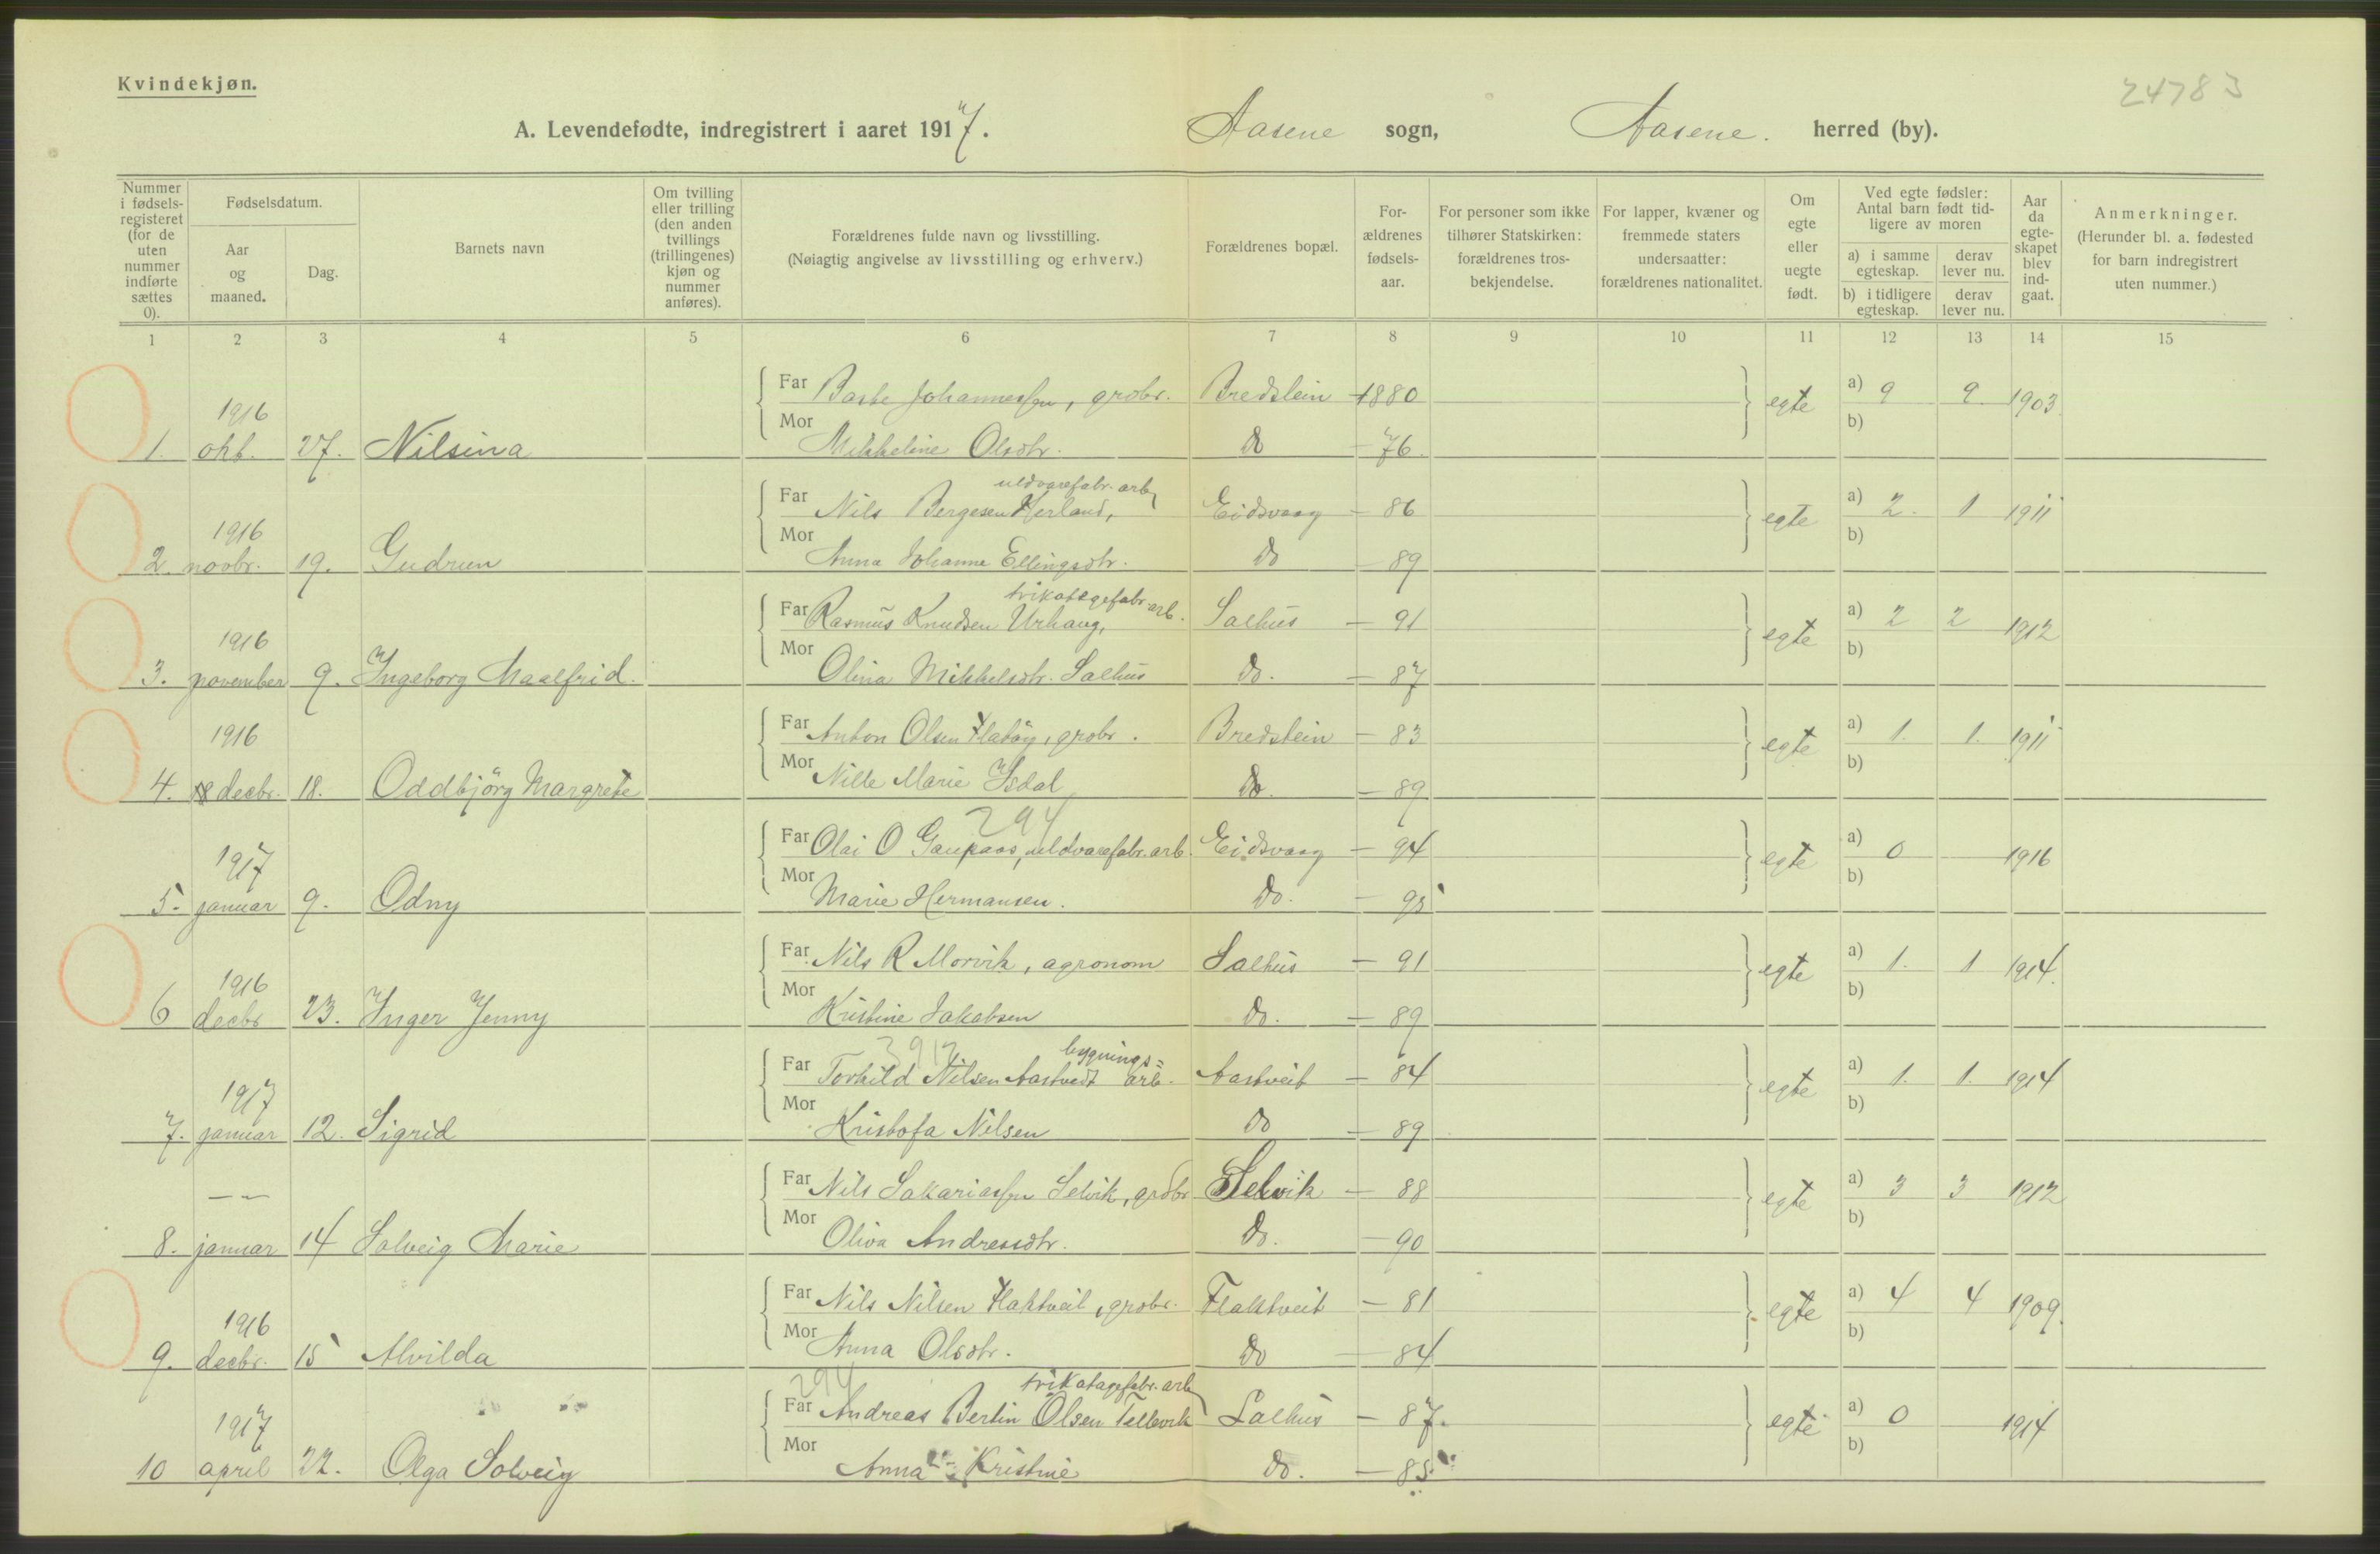 Kvindekjøn.
24783
A. Levendefødte, indregistrert i aaret 1917. Aasene sogn, Aasene. herred (by).
Nummer i fødsels-registeret (for de uten nummer indførte sættes 0).
Fødselsdatum.
Aar og maaned.
Dag.
Barnets navn
Om tvilling eller trilling (den anden tvillings (trillingenes) kjøn og nummer anføres).
Forældrenes fulde navn og livsstilling.
(Nøiagtig angivelse av livsstilling og erhverv.)
Forældrenes bopæl.
For-ældrenes fødsels-aar.
For personer som ikke tilhører Statskirken: forældrenes tros-bekjendelse.
For lapper, kvæner og fremmede staters undersaatter: forældrenes nationalitet.
Om egte eller uegte født.
Ved egte fødsler: Antal barn født tid-ligere av moren
a) i samme egteskap.
derav lever nu.
b) i tidligere egteskap.
derav lever nu.
Aar da egte-skapet blev ind-gaat.
Anmerkninger.
(Herunder bl. a. fødested for barn indregistrert uten nummer.)
1 2 3 4 5 6 7 8 9 10 11 12 13 14 15
Far Johannessen, grdbr. Bredstein 1880 egte a) 9 9 1903
1916
Mor b)
1. okt. 27. Nilsina Mikkeline Olsdtr. do - 76.
uldvarefabr. arb.
Far Nils Bergesen Herland, Eidsvaag - 86 egte a) 2. 1 1911
1916
Mor b)
2. novbr. 19. Gudrun Anna Johanne Ellingsdtr. do - 89
trikotagefabr. arb.
Far Rasmus Knudsen Urhaug, Salhus - 91 egte a) 2 2 1912
1916
Mor b)
3. november 9. Ingeborg Maalfrid. Olina Mikkelsdtr. Salhus do. - 87
Far Anton Olsen Flatöy, grdbr. Bredstein - 83 egte a) 1. 1. 1911
1916
Mor b)
4. decbr. 18. Oddbjörg Margrete Nille Marie Isdal do. - 89
294
Far Olai O Gaupaas, uldvarefabr. arb. Eidsvaag - 94 egte a) 0 1916
1917
Mor b)
5. januar 9. Odny Marie Hermansen. do. - 95
Far Nils R Morvik, agronom Salhus - 91 egte a) 1. 1 1914.
1916
Mor b)
6 decbr 23. Inger Jenny Kristine Jakobsen do. - 89
bygnings=
Far Torkild Nilsen Aastvedt arb. Aastveit - 84 egte a) 1. 1. 1914
1917
Mor b)
7. januar 12. Sigrid Kristofa Nilsen do - 89
Far Nils Sakariassen Selvik, grdbr Selvik - 88 egte a) 3 3 1912
— —
Mor b)
8. januar 14 Solveig Marie Oliva Andreasdtr. do. - 90
Far Nils Nilsen Flaktveit, grdbr. Flaktveit - 81 egte a) 4 4 1909.
1916
Mor b)
9. decbr. 15 Alvilda Anna Olsdtr. do - 84
294 trikotagefabr. arb.
Far Andreas Bertin Olsen Tellevik Salhus - 87. egte a) 0 1914
1917
Mor b)
10 april 22. Olga Solveig Anna Kristine do. - 85